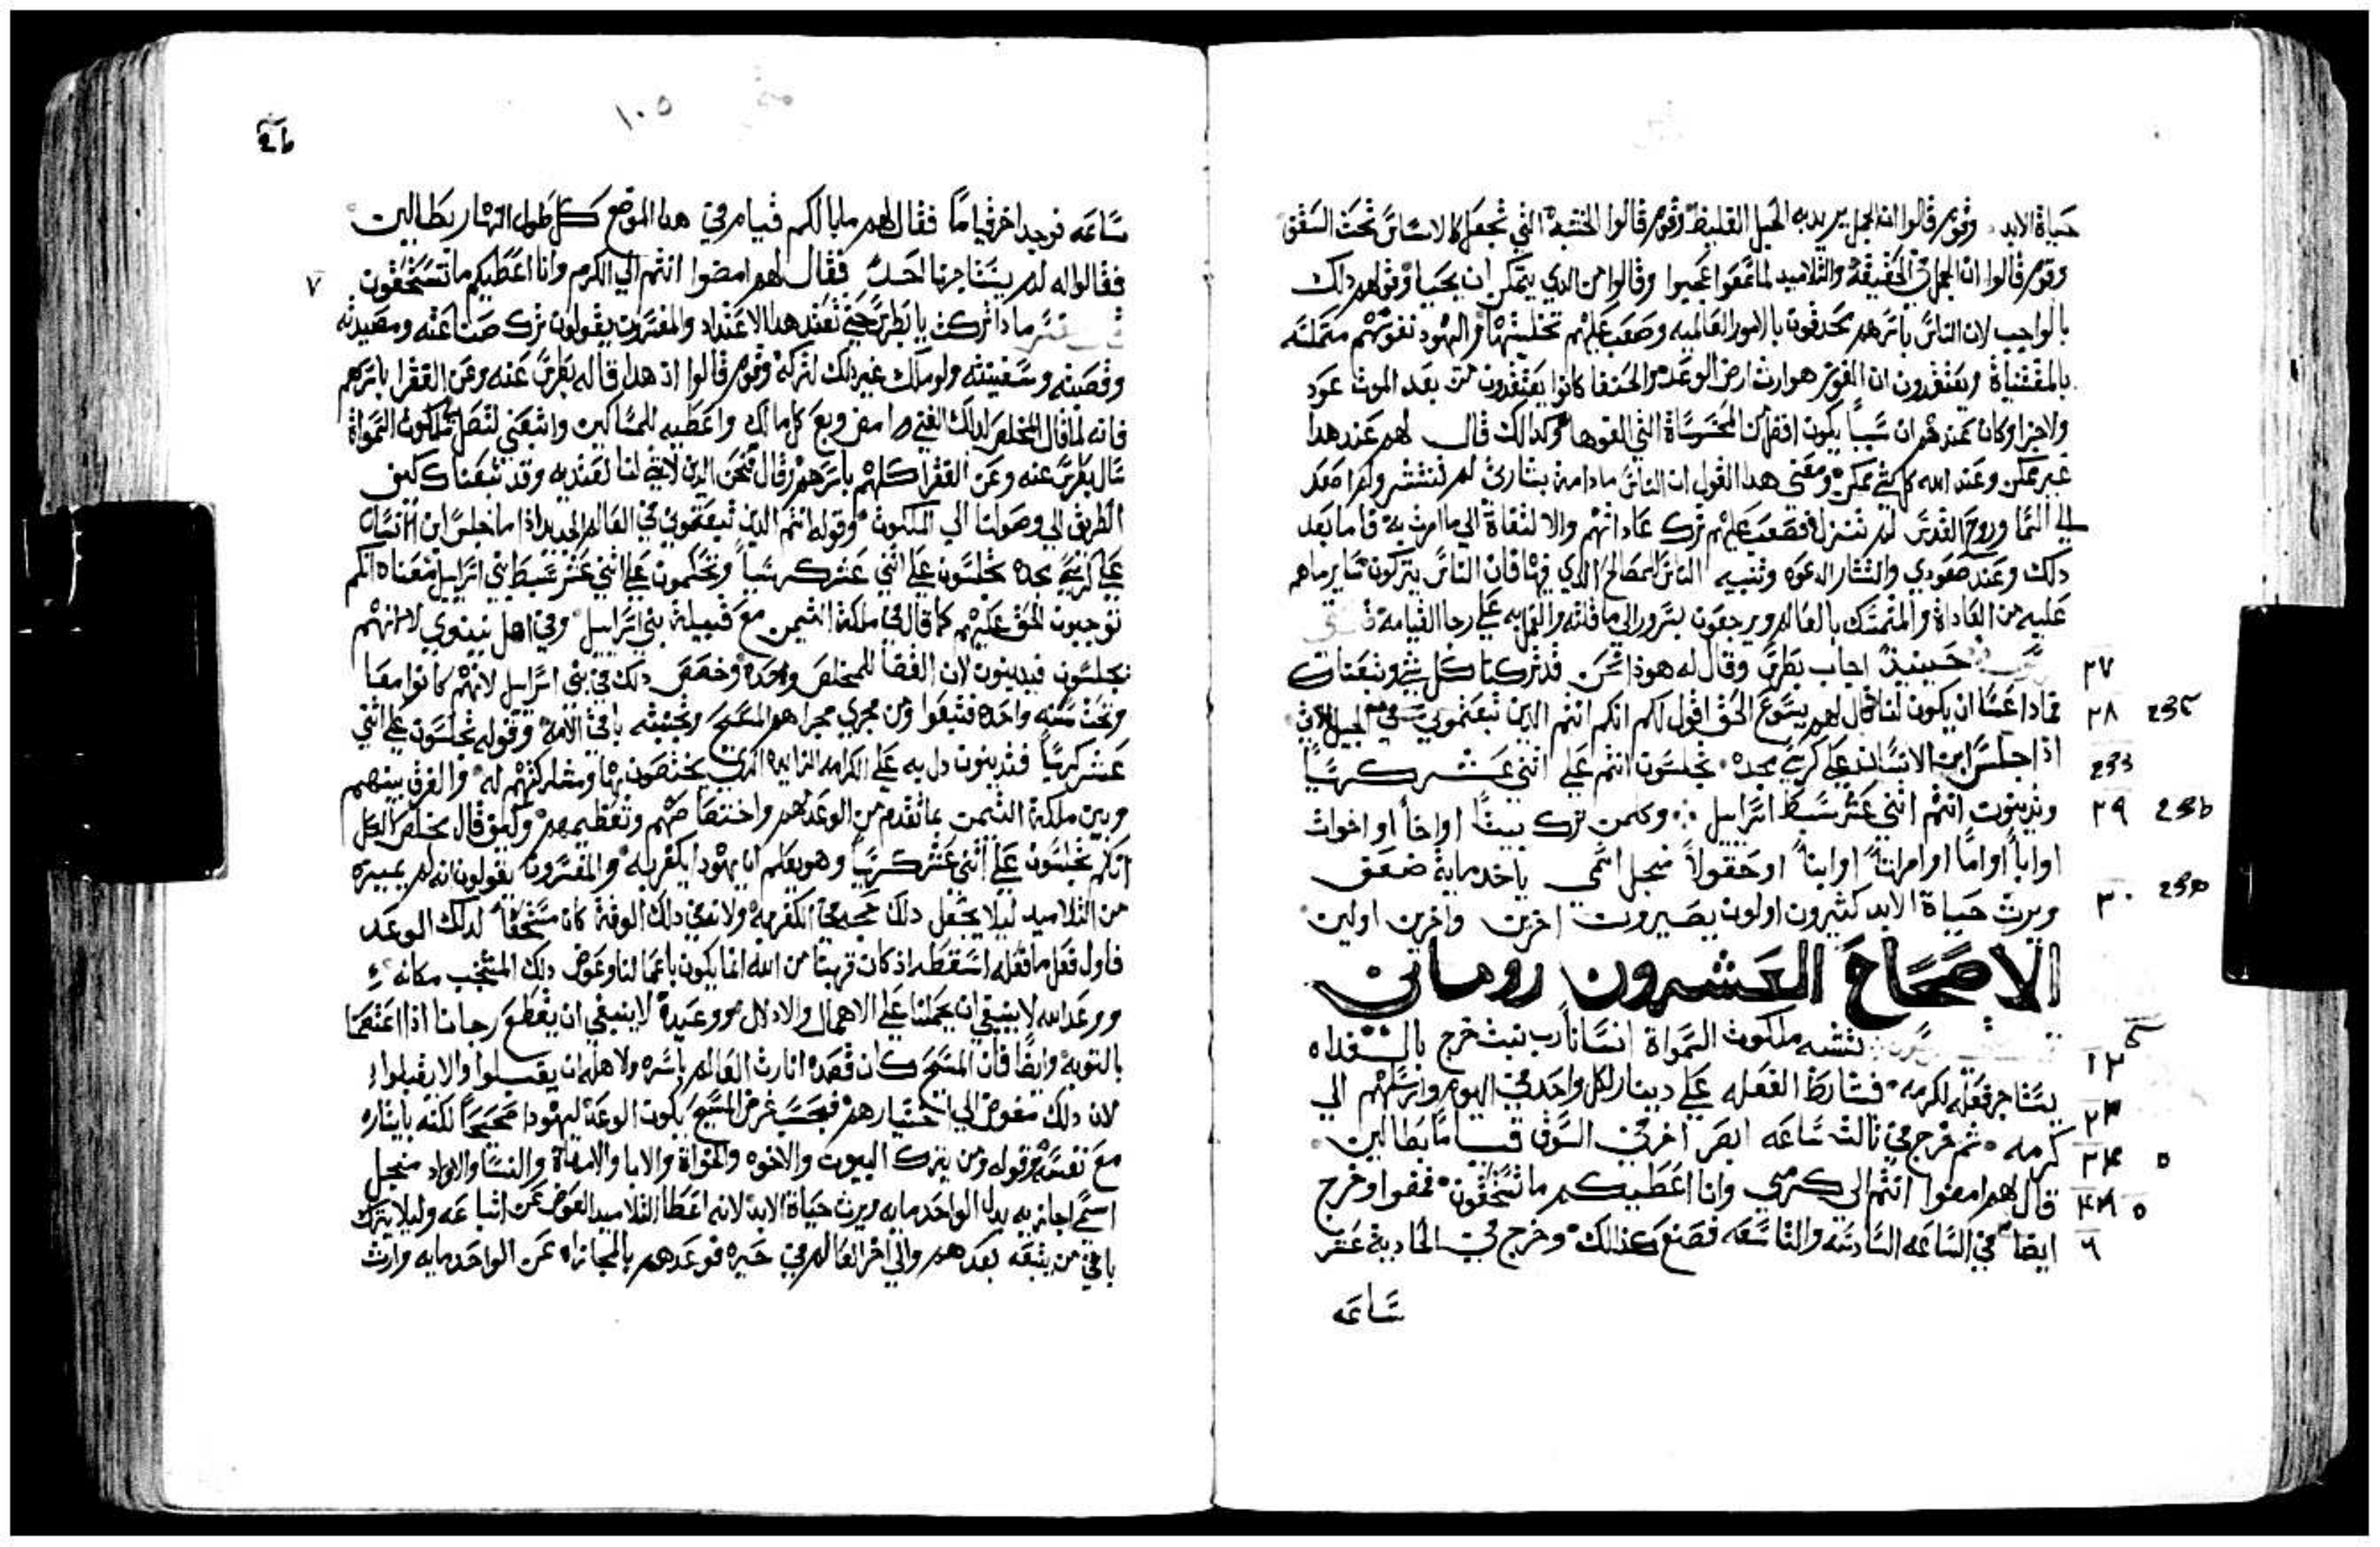 حياة الابد وقوم قالوا انه الجمل يريد به الحبل الغليظ وقوم قالوا الخشبة التي تجعل كالاساس تحت السقف
وقوم قالوا ان الجمل في الحقيقة والتلاميد لما سمعوا عجبوا وقالوا من الدي يتمكن ان يحيا وقولهم دلك
بالواجب لان الناس باسرهم يحدقون بالامور العالميه وصعب عليهم تخليتها واليهود نفوسهم متملسه
بالمقتناة ويعتقدون ان القوم هو ارث ارض الوعد والحنفا كانوا يعتقدون بعد الموت عود
ولا جزا وكان عندهم ان شيا يكون افضل من المحسوساة التي القوها وكدالك قال لهم عند هدا
غير ممكن وعند الله كل شي ممكن ومعني هدا القول ان الناس ما دامة بشارتي لم تنتشر ولم اصعد
الي السما وروح القدس لم تنزل فصعب عليهم ترك عاداتهم والالتفاة الي ما امرت به فاما بعد
دلك وعند صعودي وانتشار الدعوه وتنبيه الناس للمصالح الدي فيها فان الناس يتركون ساير ما هم
عليه من العاداة والتمسك بالعالم ويرجعون بسرور الي ما قلته والعمل به علي رجا القيامة
٢٧ حينيذ اجاب بطرس وقال له هوذا نحن قد تركنا كل شي وتبعناك
٢٨ فمادا عسا ان يكون لنا قال لهم يسوع الحق اقول لكم انكم انتم الدين تبعتموني في الجيل الاتي
اذا جلس ابن الانسان علي كرسي مجده تجلسون انتم علي اثني عشر كرسيا
٢٩ وتدينون انتم اثني عشر سبط اسراييل وكلمن ترك بيتا او اخا او اخوات
او ابا او اما او امراتا او ابنا او حقولا منجل اسمي ياخد ماية ضعف
٣٠ ويرث حياة الابد كثيرون اولون يصيرون اخرين واخرين اولين
الاصحاح العشرون روماني
تشبه ملكوت السمواة انسانا رب بيت خرج بالغداه
يستاجر فعله لكرمه فشارط الفعله علي دينار لكل واحد في اليوم وارسلهم الي
كرمه ثم خرج في تالت ساعه ابصر اخرين في السوق قياما بطالين
قال لهم امضوا انتم الي كرمي وانا اعطيكم ما تستحقون فمضوا وخرج
٦ ايضا في الساعه السادسه والتاسعه فصنع كذلك وخرج في الحادية عشر
ساعه
١٠٥
ساعه فوجد اخر قياما فقال لهم ما بالكم قيام في هدا الموضع كل طول النهار بطالين
٧ فقالوا له لم يستاجرنا احد فقال لهم امضوا انتم الي الكرم وانا اعطيكم ما تستحقون
مادا تركت يا بطرس حتي تعتد هدا الاعتداد والمفسرون يقولون ترك صناعته ومصيدته
وقصبته وسفينته ولو ملك غير دلك لتركه وقوم قالوا اذ هدا قاله بطرس عنه وعن الفقرا باسرهم
فانه لما قال المخلص لدلك الغني امض وبع كل مالك واعطيه للمساكين واتبعني لتصل ملكوت السمواة
سال بطرس عنه وعن الفقرا كلهم باسرهم وقال فنحن الدين لا شي لنا نعتد به وقد تبعناك كيف
الطريق الي وصولنا الي الملكوت وقوله انتم الدين تبعتموني في العالم الجديد اذا ما جلس ابن الانسان
علي كرسي مجده تجلسون علي اثني عشر كرسيا وتحكمون علي اثني عشر سبط بني اسراييل معناه انكم
توجبون الحق عليهم كما قال في ملكة التيمن مع قبيلة بني اسراييل وفي اهل نينوي لا انهم
يجلسون فيدينون لان القضا للمخلص وحده وخصص دلك في بني اسراييل لانهم كانوا معا
وتحت سنه واحده فتبعوا ومن مجري مجراهم المسيح وتجنبته باقي الامة وقوله تجلسون علي اثني
عشر كرسيا فتدينون دل به علي الكرامه الزايده الدي يختصون بها ومشاركتهم له والفرق بينهم
وبين ملكة التيمن بما تقدم من الوعد لهم واختصاصهم وتعظيمهم وكيف قال مخلص الكل
انكم تجلسون علي اثني عشر كرسيا وهو يعلم ان يهودا يكفر به والمفسرون يقولون انه لم يميزه
من التلاميد ليلا يجعل دلك حجة في الكفر به ولانه في دلك الوقة كان مستحقا لدلك الوعد
فاول فعل ما فعله اسقطه اذ كان قربتا من الله انما يكون باعمالنا وعوض دلك المنتخب مكانه
ووعد الله لا ينبغي ان يحملنا علي الاهمال والادلال ووعيدة لا ينبغي ان يقطع رجانا اذا اعتصمنا
بالتوبة وايضا فان المسيح كان قصده انارت العالم باسره ولاهله ان يقبلوا والا يقبلوا
لان دلك مفوض الي اختيارهم فبحسب غرض المسيح يكون الوعد ليهودا صحيحا لكنه بايثاره
مع نفسه وقوله ومن يترك البيوت والاخوه والخواة والابا والامهاة والنسا والاولاد منجل
اسمي اجازيه بدل الواحد مايه ويرث حياة الابد لانه اعطا التلاميد العوض عن اتباعه وليلا يترك
باقي من يتبعه بعدهم والي اخر العالم في حيره فوعدهم بالمجازاه عن الواحد مايه وارث